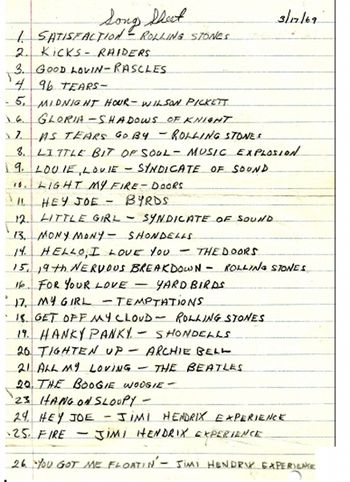 Song Sheet 3/17/69
1. SATISFACTION - ROLLING STONES
2. KICKS - RAIDERS
3. GOOD LOVIN - RASCLES
4. 96 TEARS -
5. MIDNIGHT HOUR - WILSON PICKETT
6. GLORIA - SHADOWS OF KNIGHT
7. AS TEARS GO BY - ROLLING STONES
8. LITTLE BIT OF SOUL - MUSIC EXPLOSION
9. LOUIE, LOUIE - SYNDICATE OF SOUND
10. LIGHT MY FIRE - DOORS
11. HEY JOE - BYRDS
12. LITTLE GIRL - SYNDICATE OF SOUND
13. MONY MONY - SHONDELLS
14. HELLO, I LOVE YOU - THE DOORS
15. 19th NERVOUS BREAKDOWN - ROLLING STONES
16. FOR YOUR LOVE - YARD BIRDS
17. MY GIRL - TEMPTATIONS
18. GET OFF MY CLOUD - ROLLING STONES
19. HANKY PANKY - SHONDELLS
20. TIGHTEN UP - ARCHIE BELL
21. ALL MY LOVING - THE BEATLES
22. THE BOOGIE WOOGIE -
23. HANG ON SLOOPY -
24. HEY JOE - JIMI HENDRIX EXPERIENCE
25. FIRE - JIMI HENDRIX EXPERIENCE
26. YOU GOT ME FLOATIN' - JIMI HENDRIX EXPERIENCE